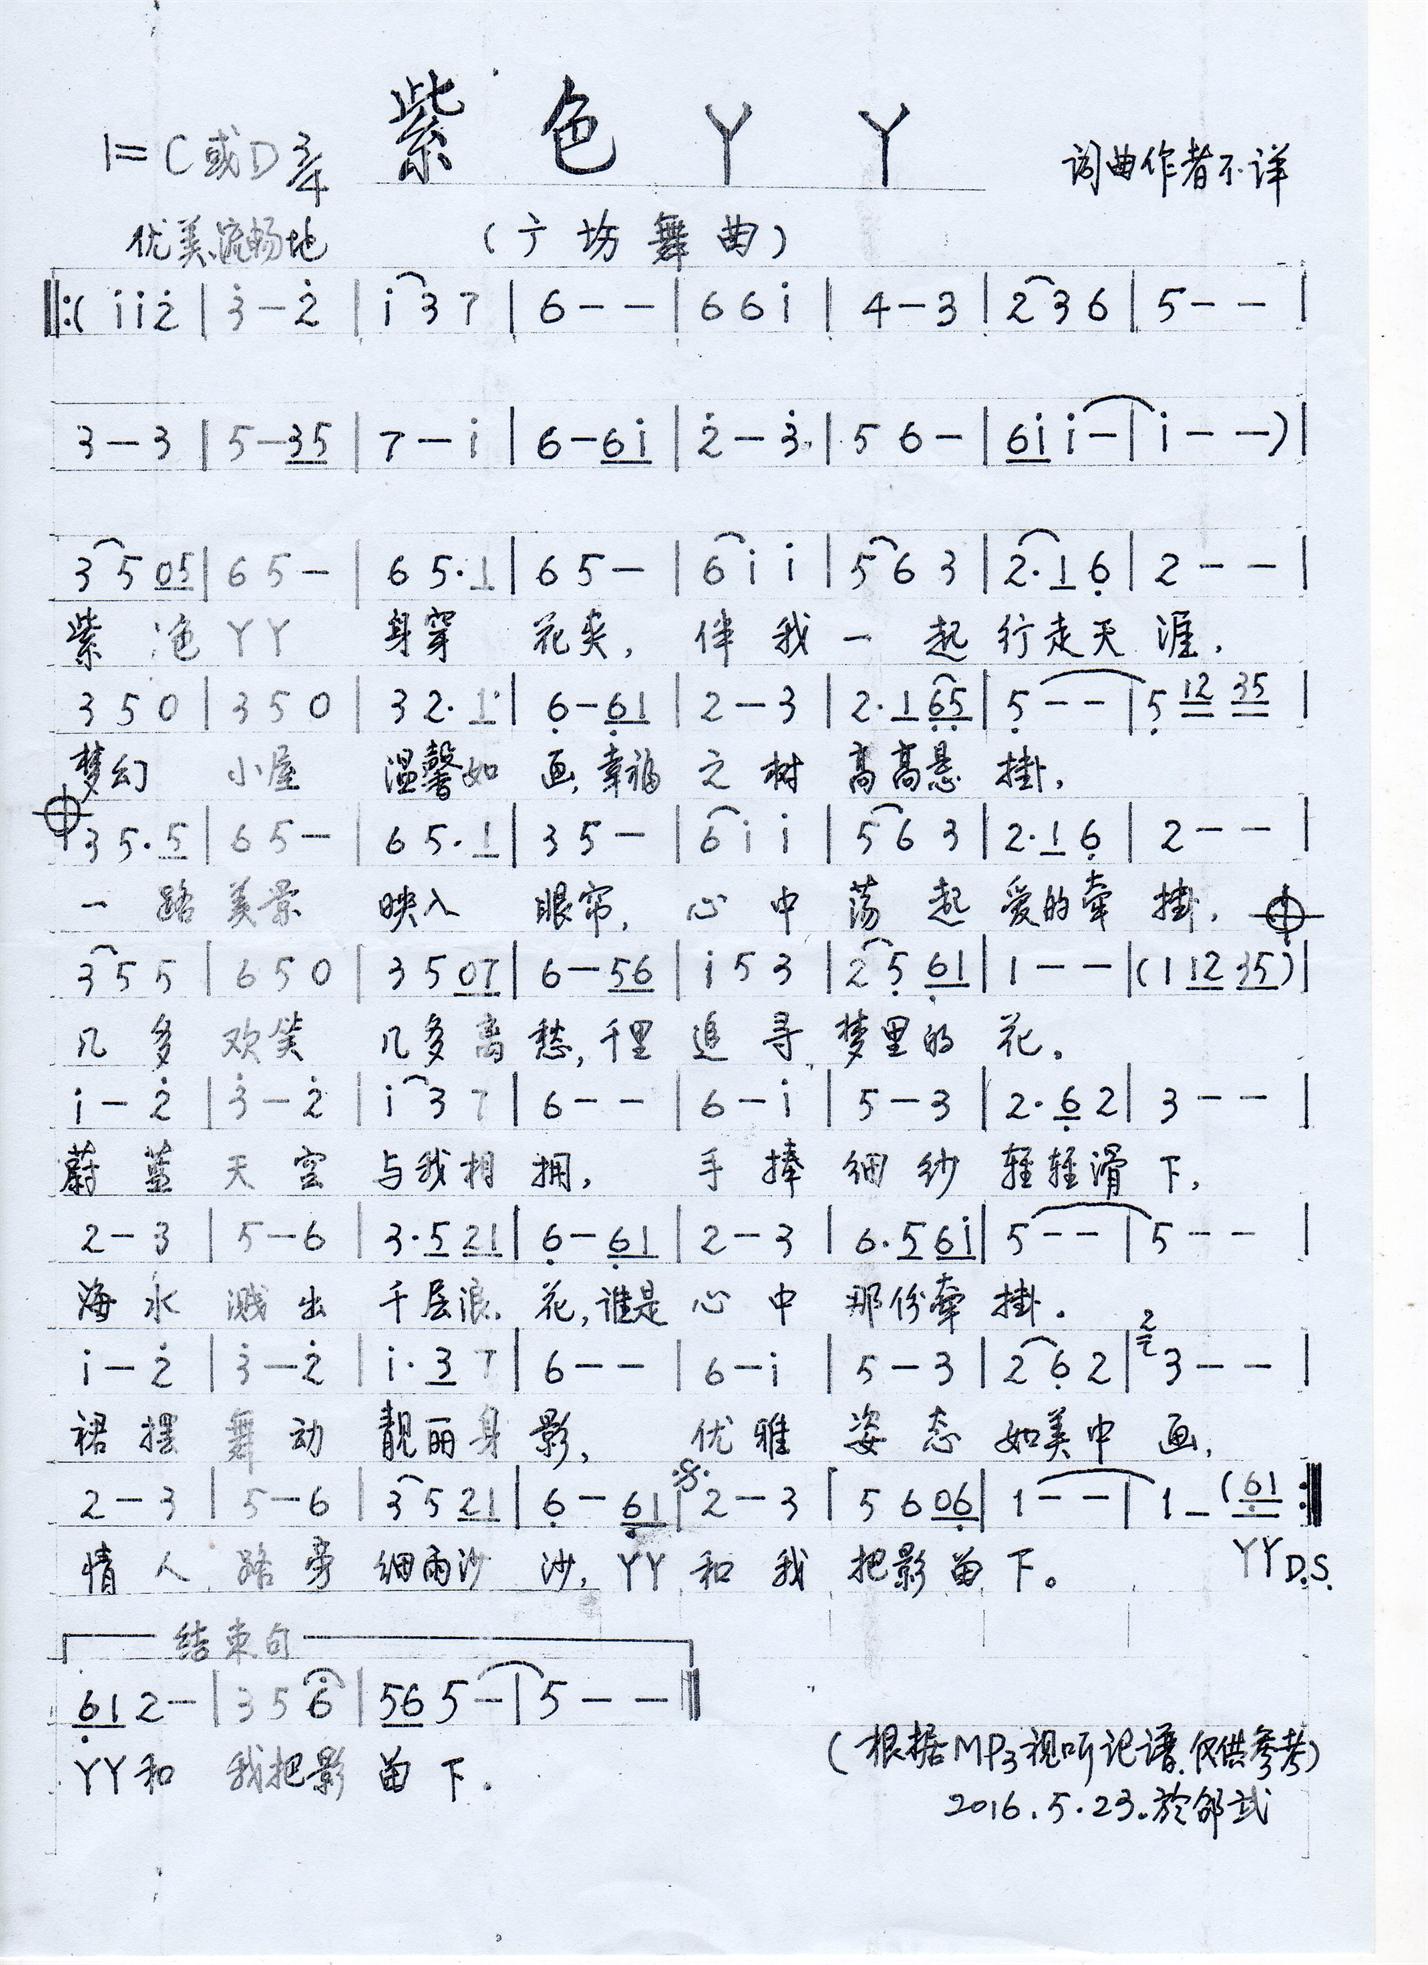 紫色丫丫
1=C或D 3/4
词曲作者不详
优美、流畅地
（广场舞曲）
‖:( i̇ i̇ 2̇ | 3̇ - 2̇ | i̇ 3 7 | 6 - - | 6 6 i̇ | 4 - 3 | 2 3 6 | 5 - - |
3 - 3 | 5 - 35 | 7 - i̇ | 6 - 6i̇ | 2̇ - 3̇ | 5 6 - | 6i̇ i̇ - | i̇ - - ) |
3 5 05 | 6 5 - | 6 5· 1 | 6 5 - | 6 i̇ i̇ | 5 6 3 | 2· 1 6̣ | 2 - - |
紫 色 丫丫 身穿 花夹， 伴 我 一 起 行走天 涯，
3 5 0 | 3 5 0 | 3 2· 1 | 6̣ - 6̣1 | 2 - 3 | 2· 1 6̣5̣ | 5̣ - - | 5̣ 12 35 |
梦幻 小屋 温馨如 画，幸福 之 树 高高悬 掛，
3 5· 5 | 6 5 - | 6 5· 1 | 3 5 - | 6 i̇ i̇ | 5 6 3 | 2· 1 6̣ | 2 - - |
一 路 美景 映入 眼帘， 心 中 荡 起 爱的牵 掛，
3 5 5 | 6 5 0 | 3 5 07 | 6 - 56 | i̇ 5 3 | 2 5̣ 6̣1 | 1 - - | (1 12 35) |
几 多 欢笑 几多离 愁，千里 追 寻 梦里的 花。
i̇ - 2̇ | 3̇ - 2̇ | i̇ 3 7 | 6 - - | 6 - i̇ | 5 - 3 | 2· 6̣ 2 | 3 - - |
蔚 蓝 天 空 与我相 拥， 手 捧 细 纱 轻轻滑 下，
2 - 3 | 5 - 6 | 3· 5 21 | 6̣ - 6̣1 | 2 - 3 | 6· 5 6i̇ | 5 - - | 5 - - |
海 水 溅 出 千层浪 花，谁是 心 中 那份牵 掛。
i̇ - 2̇ | 3̇ - 2̇ | i̇· 3 7 | 6 - - | 6 - i̇ | 5 - 3 | 2 6̣ 2 | 2 3 - - |
裙 摆 舞 动 靓丽身 影， 优 雅 姿 态 如美中 画，
2 - 3 | 5 - 6 | 3 5 21 | 6̣ - 6̣1 | 2 - 3 | 5 6 06̣ | 1 - - | 1 - (6̣1 :‖
情 人 路 旁 细雨沙 沙，丫丫 和 我 把影留 下。 丫丫 D.S.
结束句
6̣1 2 - | 3 5 6̇ | 56 5 - | 5 - - ‖
丫丫和 我把影 留 下。
（根据MP3视听记谱，仅供参考）
2016.5.23.於邵武